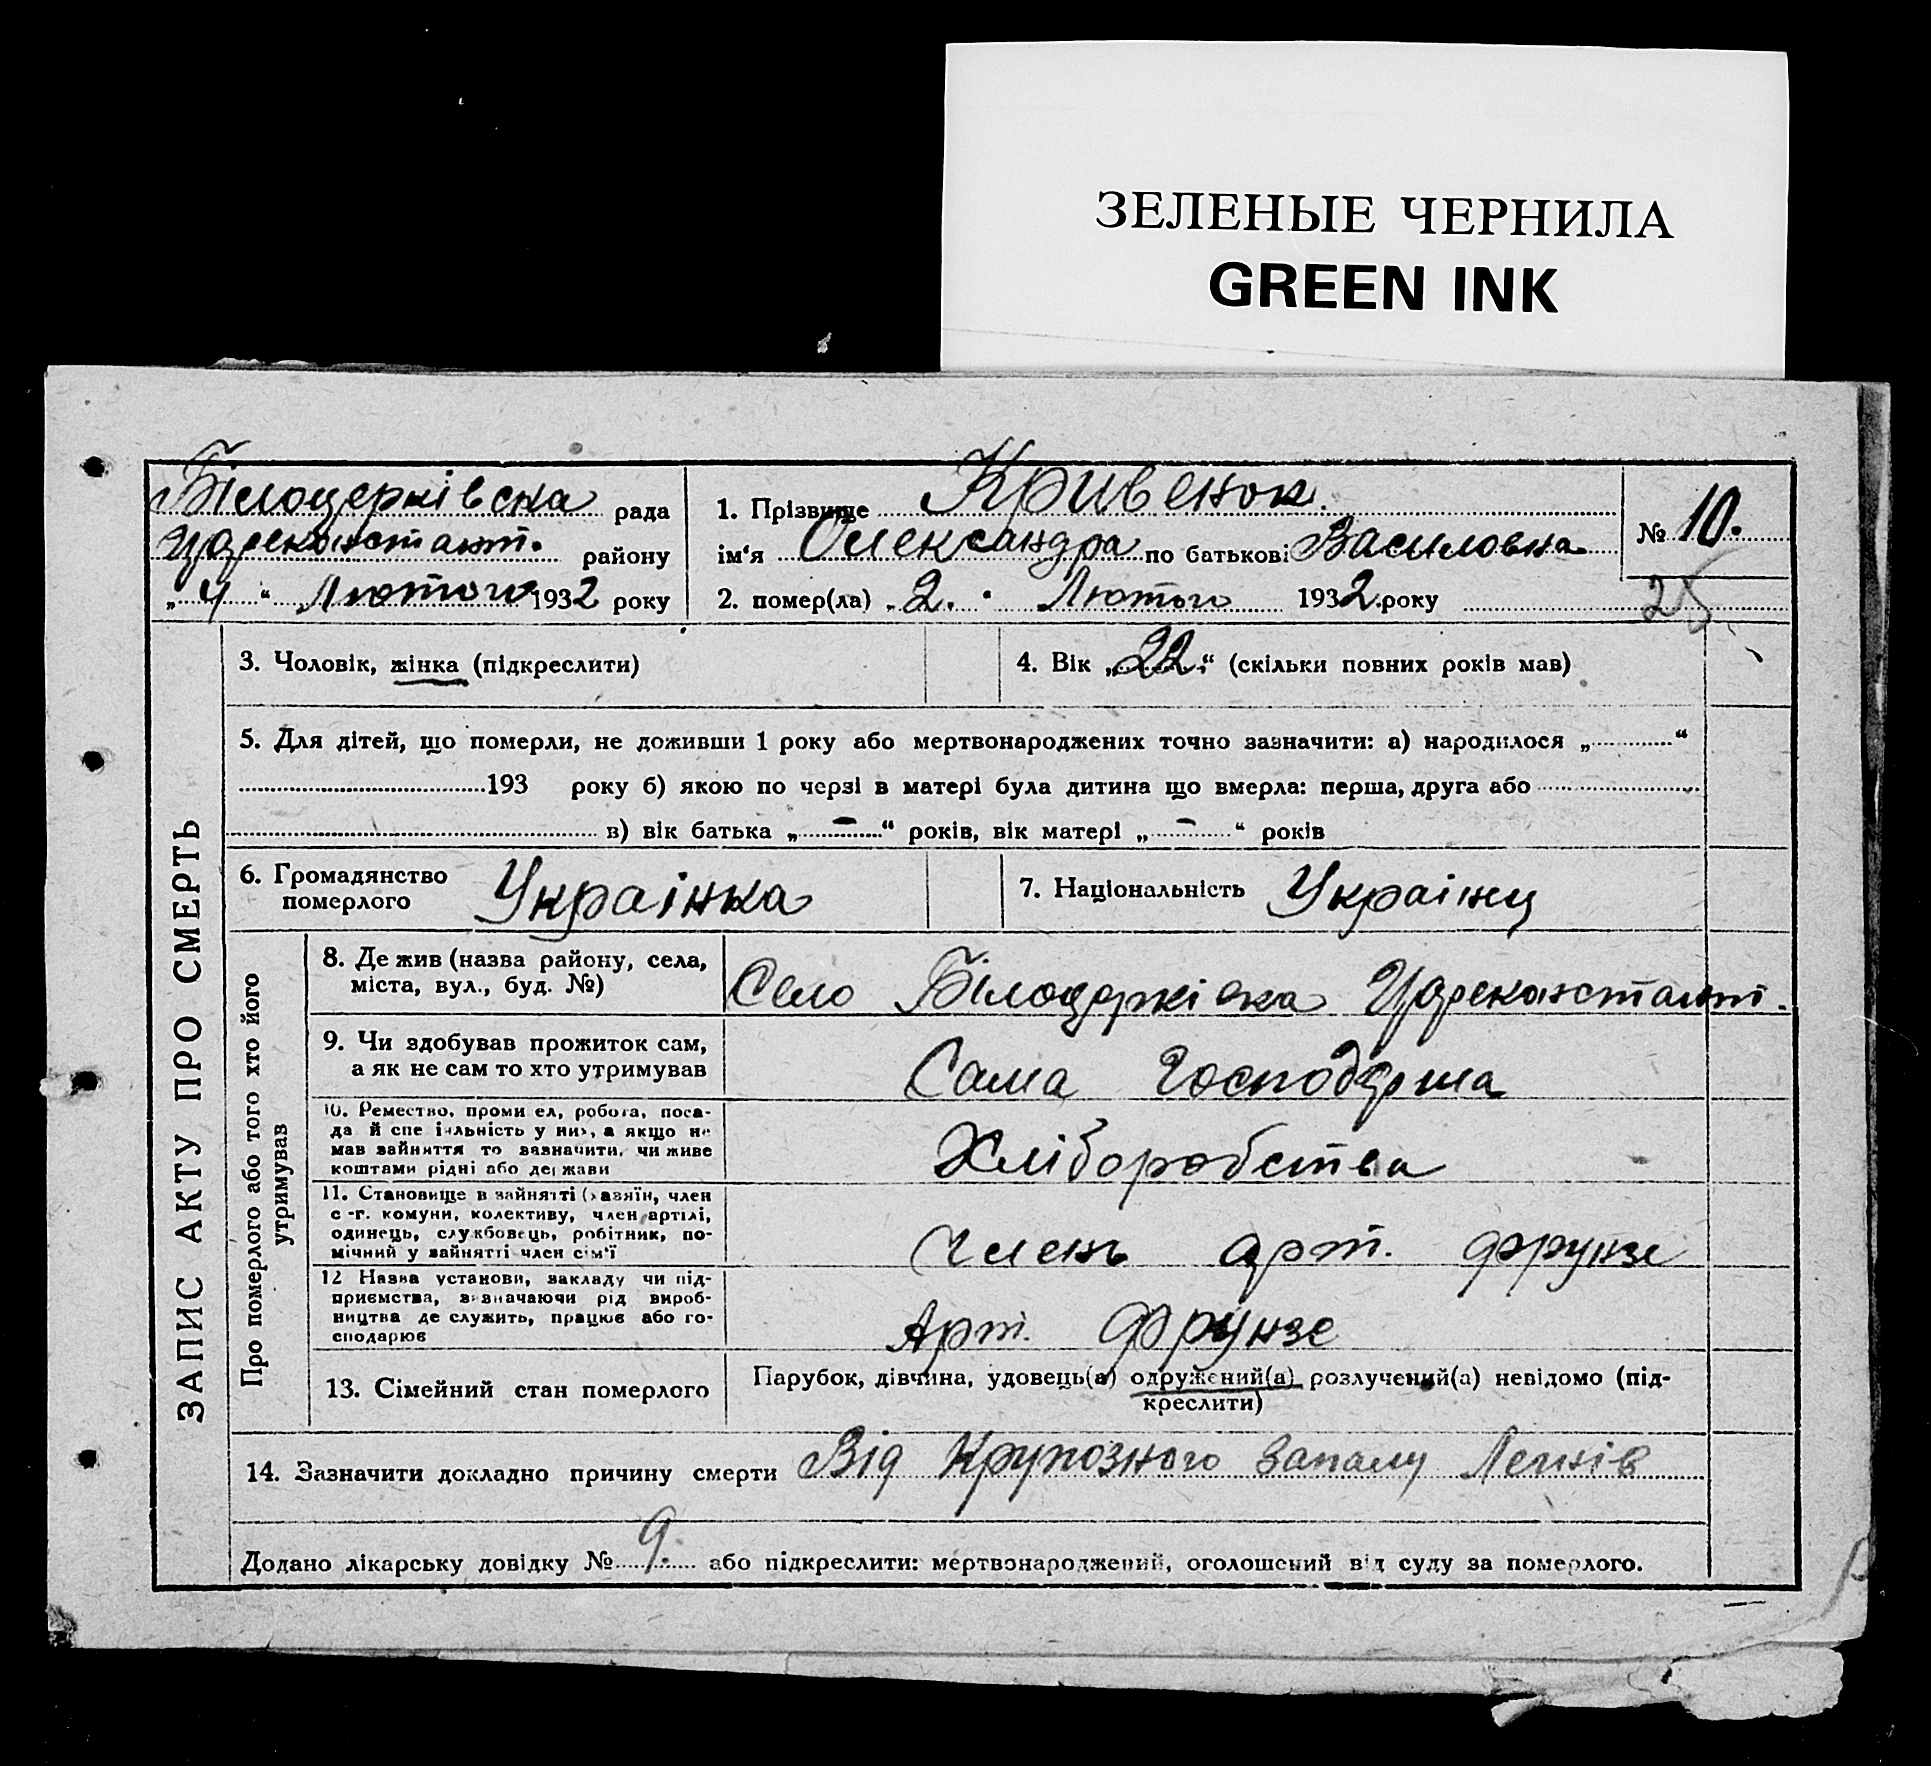 ЗЕЛЕНЫЕ ЧЕРНИЛА
GREEN INK
Білоцерківска рада
Цареконстант. району
„4“ Лютого 1932 року
1. Прізвище Кривенок.
ім'я Олександра по батькові Василовна
2. помер(ла) „2.“ Лютого 1932 року
№ 10.
25
ЗАПИС АКТУ ПРО СМЕРТЬ
3. Чоловік, жінка (підкреслити)
4. Вік „22“ (скільки повних років мав)
5. Для дітей, що померли, не доживши 1 року або мертвонароджених точно зазначити: а) народилося „ “
193 року б) якою по черзі в матері була дитина що вмерла: перша, друга або
в) вік батька „ – “ років, вік матері „ – “ років
6. Громадянство
померлого Українка
7. Національність Українц
Про померлого або того хто його
утримував
8. Де жив (назва району, села,
міста, вул., буд. №)
Село Білоцерківка Цареконстант.
9. Чи здобував прожиток сам,
а як не сам то хто утримував
Сама Господарша
10. Ремество, проми ел, робота, поса-
да й спе іяльність у них, а якщо не
мав зайняття то зазначити, чи живе
коштами рідні або держави
Хліборобства
11. Становище в зайнятті (хазяїн, член
с-г. комуни, колективу, член артілі,
одинець, службовець, робітник, по-
мічний у зайнятті член сім'ї
Члень арт. Фрунзе
12 Назва установи, закладу чи під-
приємства, зазначаючи рід вироб-
ництва де служить, працює або го-
сподарює
Арт. Фрунзе
13. Сімейний стан померлого
Парубок, дівчина, удовець(а) одружений(а) розлучений(а) невідомо (під-
креслити)
14. Зазначити докладно причину смерти Від Крупозного запалу Легнів
Додано лікарську довідку № 9. або підкреслити: мертвонароджений, оголошений від суду за померлого.